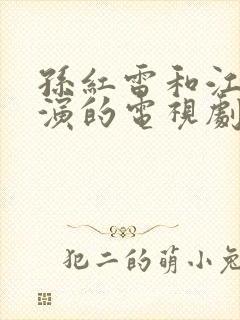 孫紅雷和江
演的電視劇
犯二的萌小兔